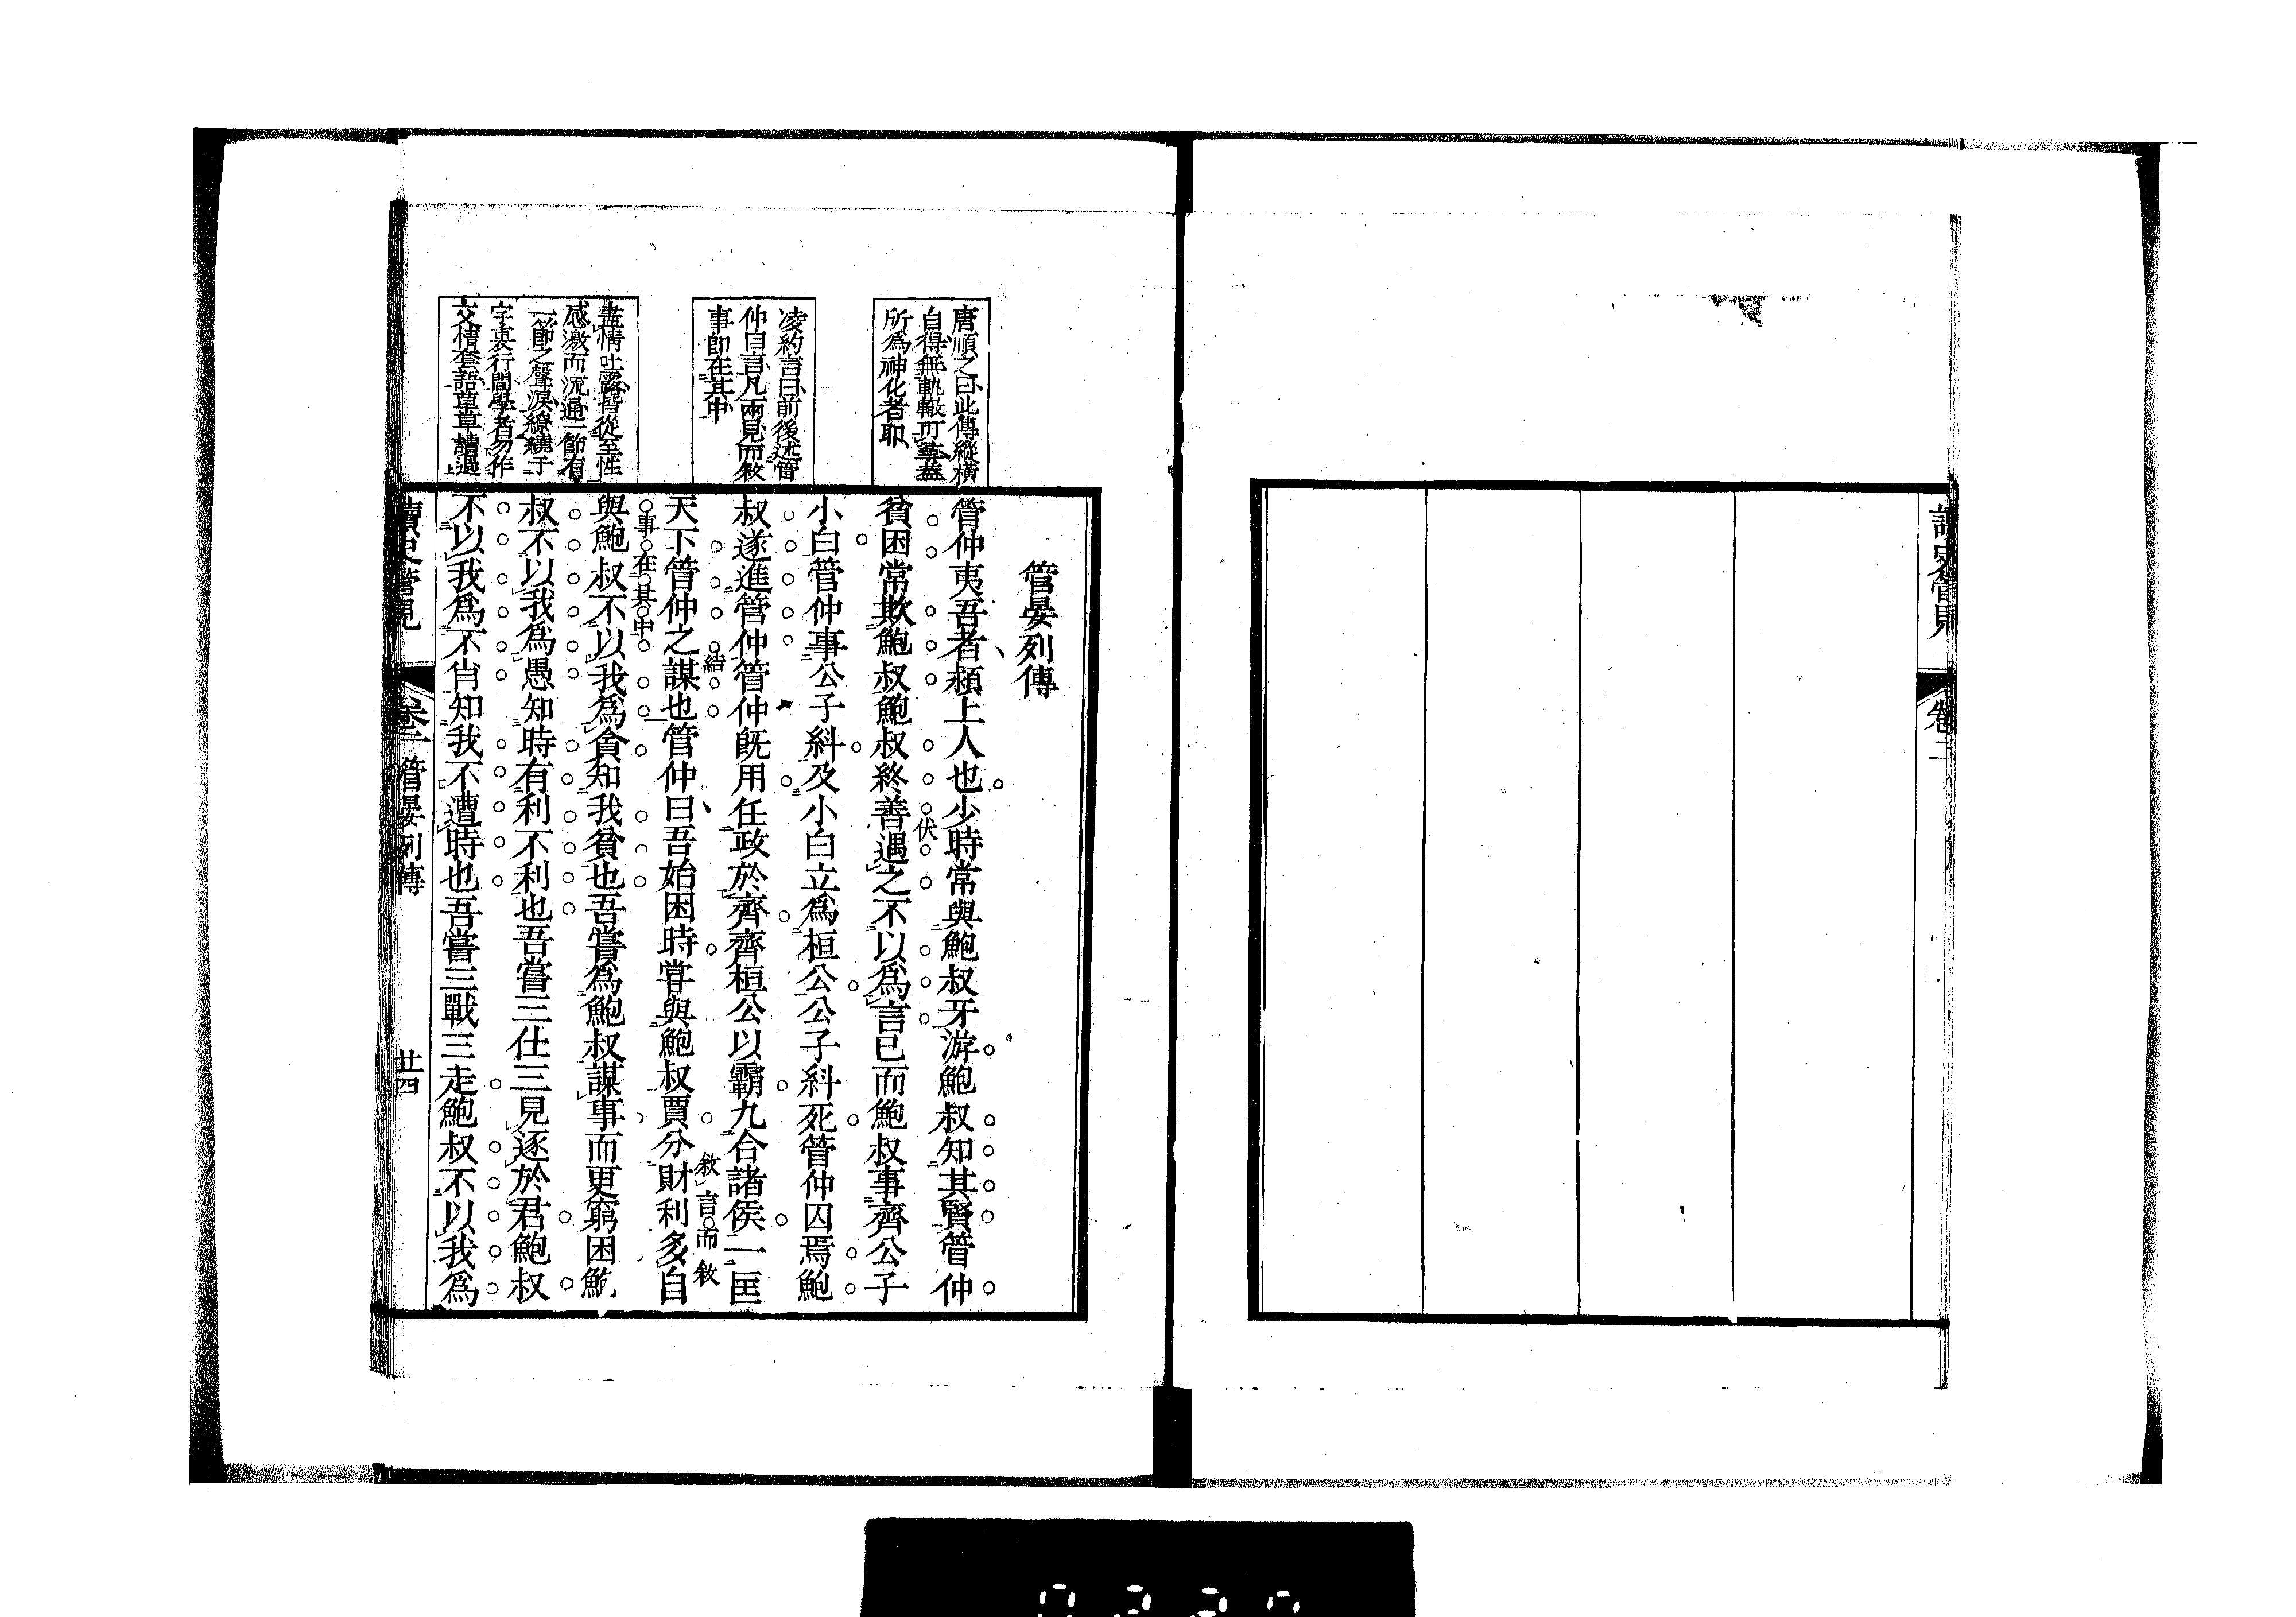 讀史管見
卷二
管晏列傳
管仲夷吾者潁上人也少時常與鮑叔牙游鮑叔知其賢管仲
伏
貧困常欺鮑叔鮑叔終善遇之不以爲言已而鮑叔事齊公子
小白管仲事公子糾及小白立爲桓公公子糾死管仲囚焉鮑
叔遂進管仲管仲旣用任政於齊齊桓公以霸九合諸侯一匡
結
敘言而敘
天下管仲之謀也管仲曰吾始困時甞與鮑叔賈分財利多自
事在其中
與鮑叔不以我爲貪知我貧也吾嘗爲鮑叔謀事而更窮困鮑
叔不以我爲愚知時有利不利也吾嘗三仕三見逐於君鮑叔
不以我爲不肖知我不遭時也吾嘗三戰三走鮑叔不以我爲
唐順之曰此傳縱橫
自得無軌轍可尋蓋
所爲神化者耶
凌約言曰前後述管
仲曰言凡兩見而敘
事卽在其中
盡情吐露皆從至性
感激而流通一節有
一節之聲淚繚繞于
字裏行間學者勿作
交情套語草草讀過
讀史管見
卷二
管晏列傳
廿四